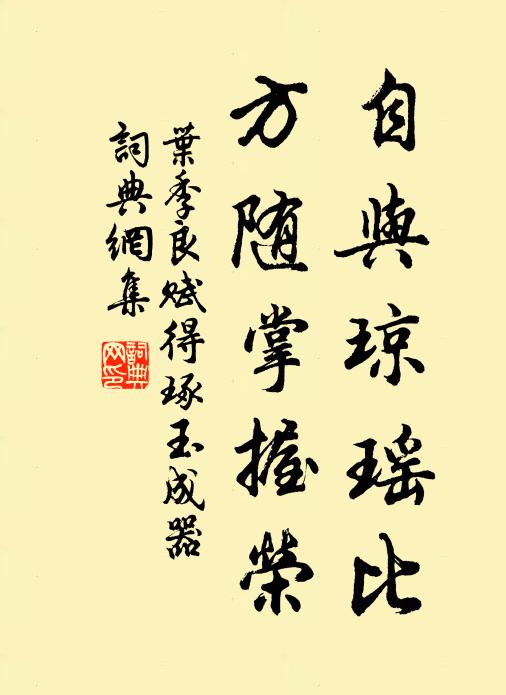 自與琼瑶比
方随掌握榮
葉季良赋得琢玉成器
詞典網集
詞典網印